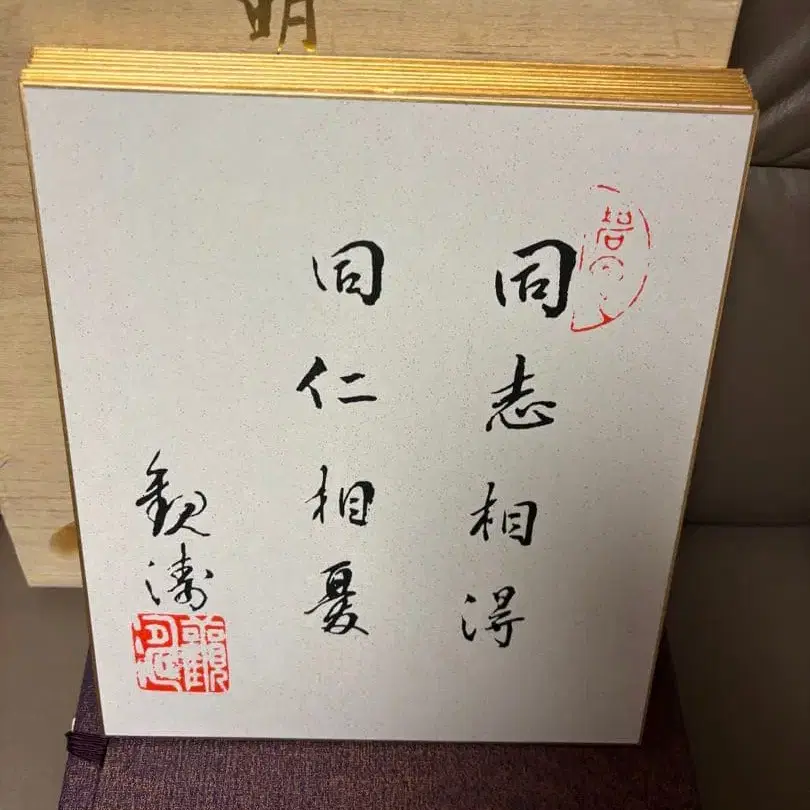 明
同志相得
同仁相憂
觀濤